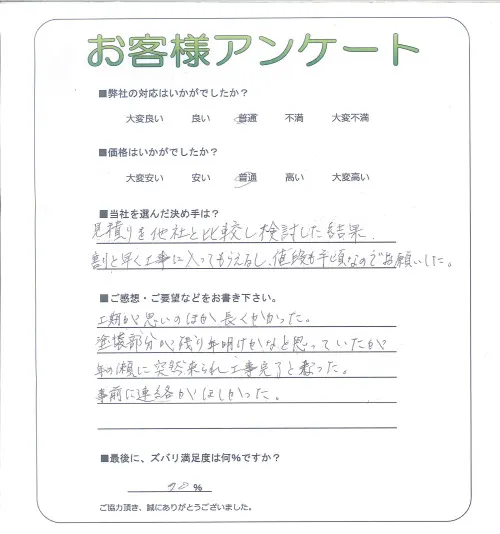 お客様アンケート
■弊社の対応はいかがでしたか？
大変良い 良い 普通 不満 大変不満
■価格はいかがでしたか？
大変安い 安い 普通 高い 大変高い
■当社を選んだ決め手は？
見積りを他社と比較し検討した結果、
割と早く工事に入ってもらえるし、値段も手頃なのでお願いした。
■ご感想・ご要望などをお書き下さい。
工期が思いのほか長くかかった。
塗装部分が残り年明けかなと思っていたが
年の瀬に突然来られ工事完了と なった。
事前に連絡がほしかった。
■最後に、ズバリ満足度は何%ですか？
%
ご協力頂き、誠にありがとうございました。